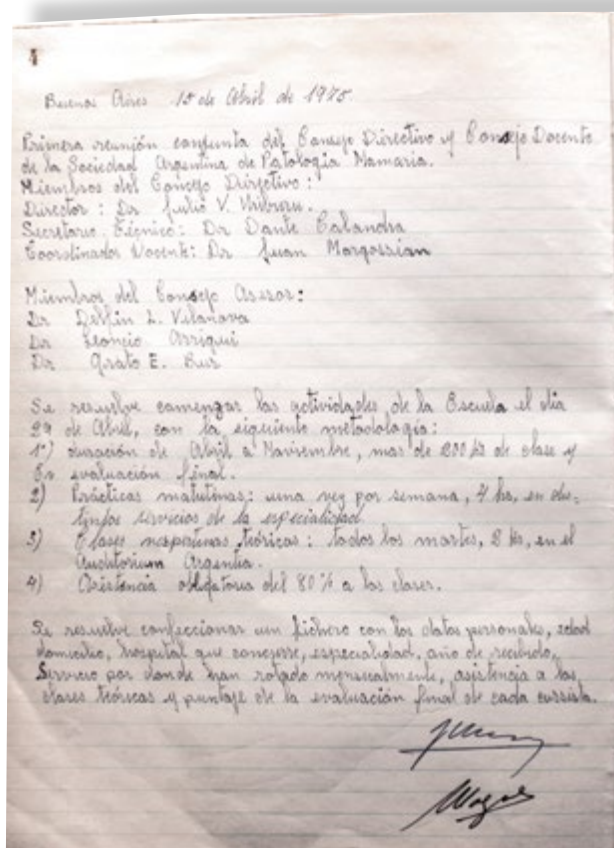 Buenos Aires 15 de Abril de 1975.
Primera reunión conjunta del Consejo Directivo y Consejo Docente
de la Sociedad Argentina de Patología Mamaria.
Miembros del Concejo Directivo:
Director: Dr Julio V. Uriburu.
Secretario Técnico: Dr Dante Calandra
Coordinador Docente: Dr Juan Margossian
Miembros del Consejo Asesor:
Dr Delfin L. Vilanova
Dr Leoncio Arrigui
Dr Grato E. Bur
Se resuelve comenzar las actividades de la Escuela el dia
29 de Abril, con la siguiente metodología:
1º) duración de Abril a Noviembre, mas de 200 hs de clase y
evaluación final.
2) Prácticas matutinas: una vez por semana, 4 hs, en dis-
tintos servicios de la especialidad.
3) Clases vespertinas teóricas: todos los martes, 8 hs, en el
Auditorium Argentia.
4) Asistencia obligatoria del 80% a las clases.
Se resuelve confeccionar un fichero con los datos personales, edad
domicilio, hospital que concurre, especialidad, año de recibido,
Servicio por donde han rotado mensualmente, asistencia a las
clases teóricas y puntaje de la evaluación final de cada cursista.